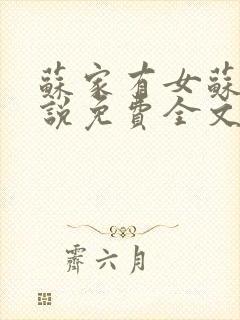 蘇家有女蘇
說免費全文
霽六月